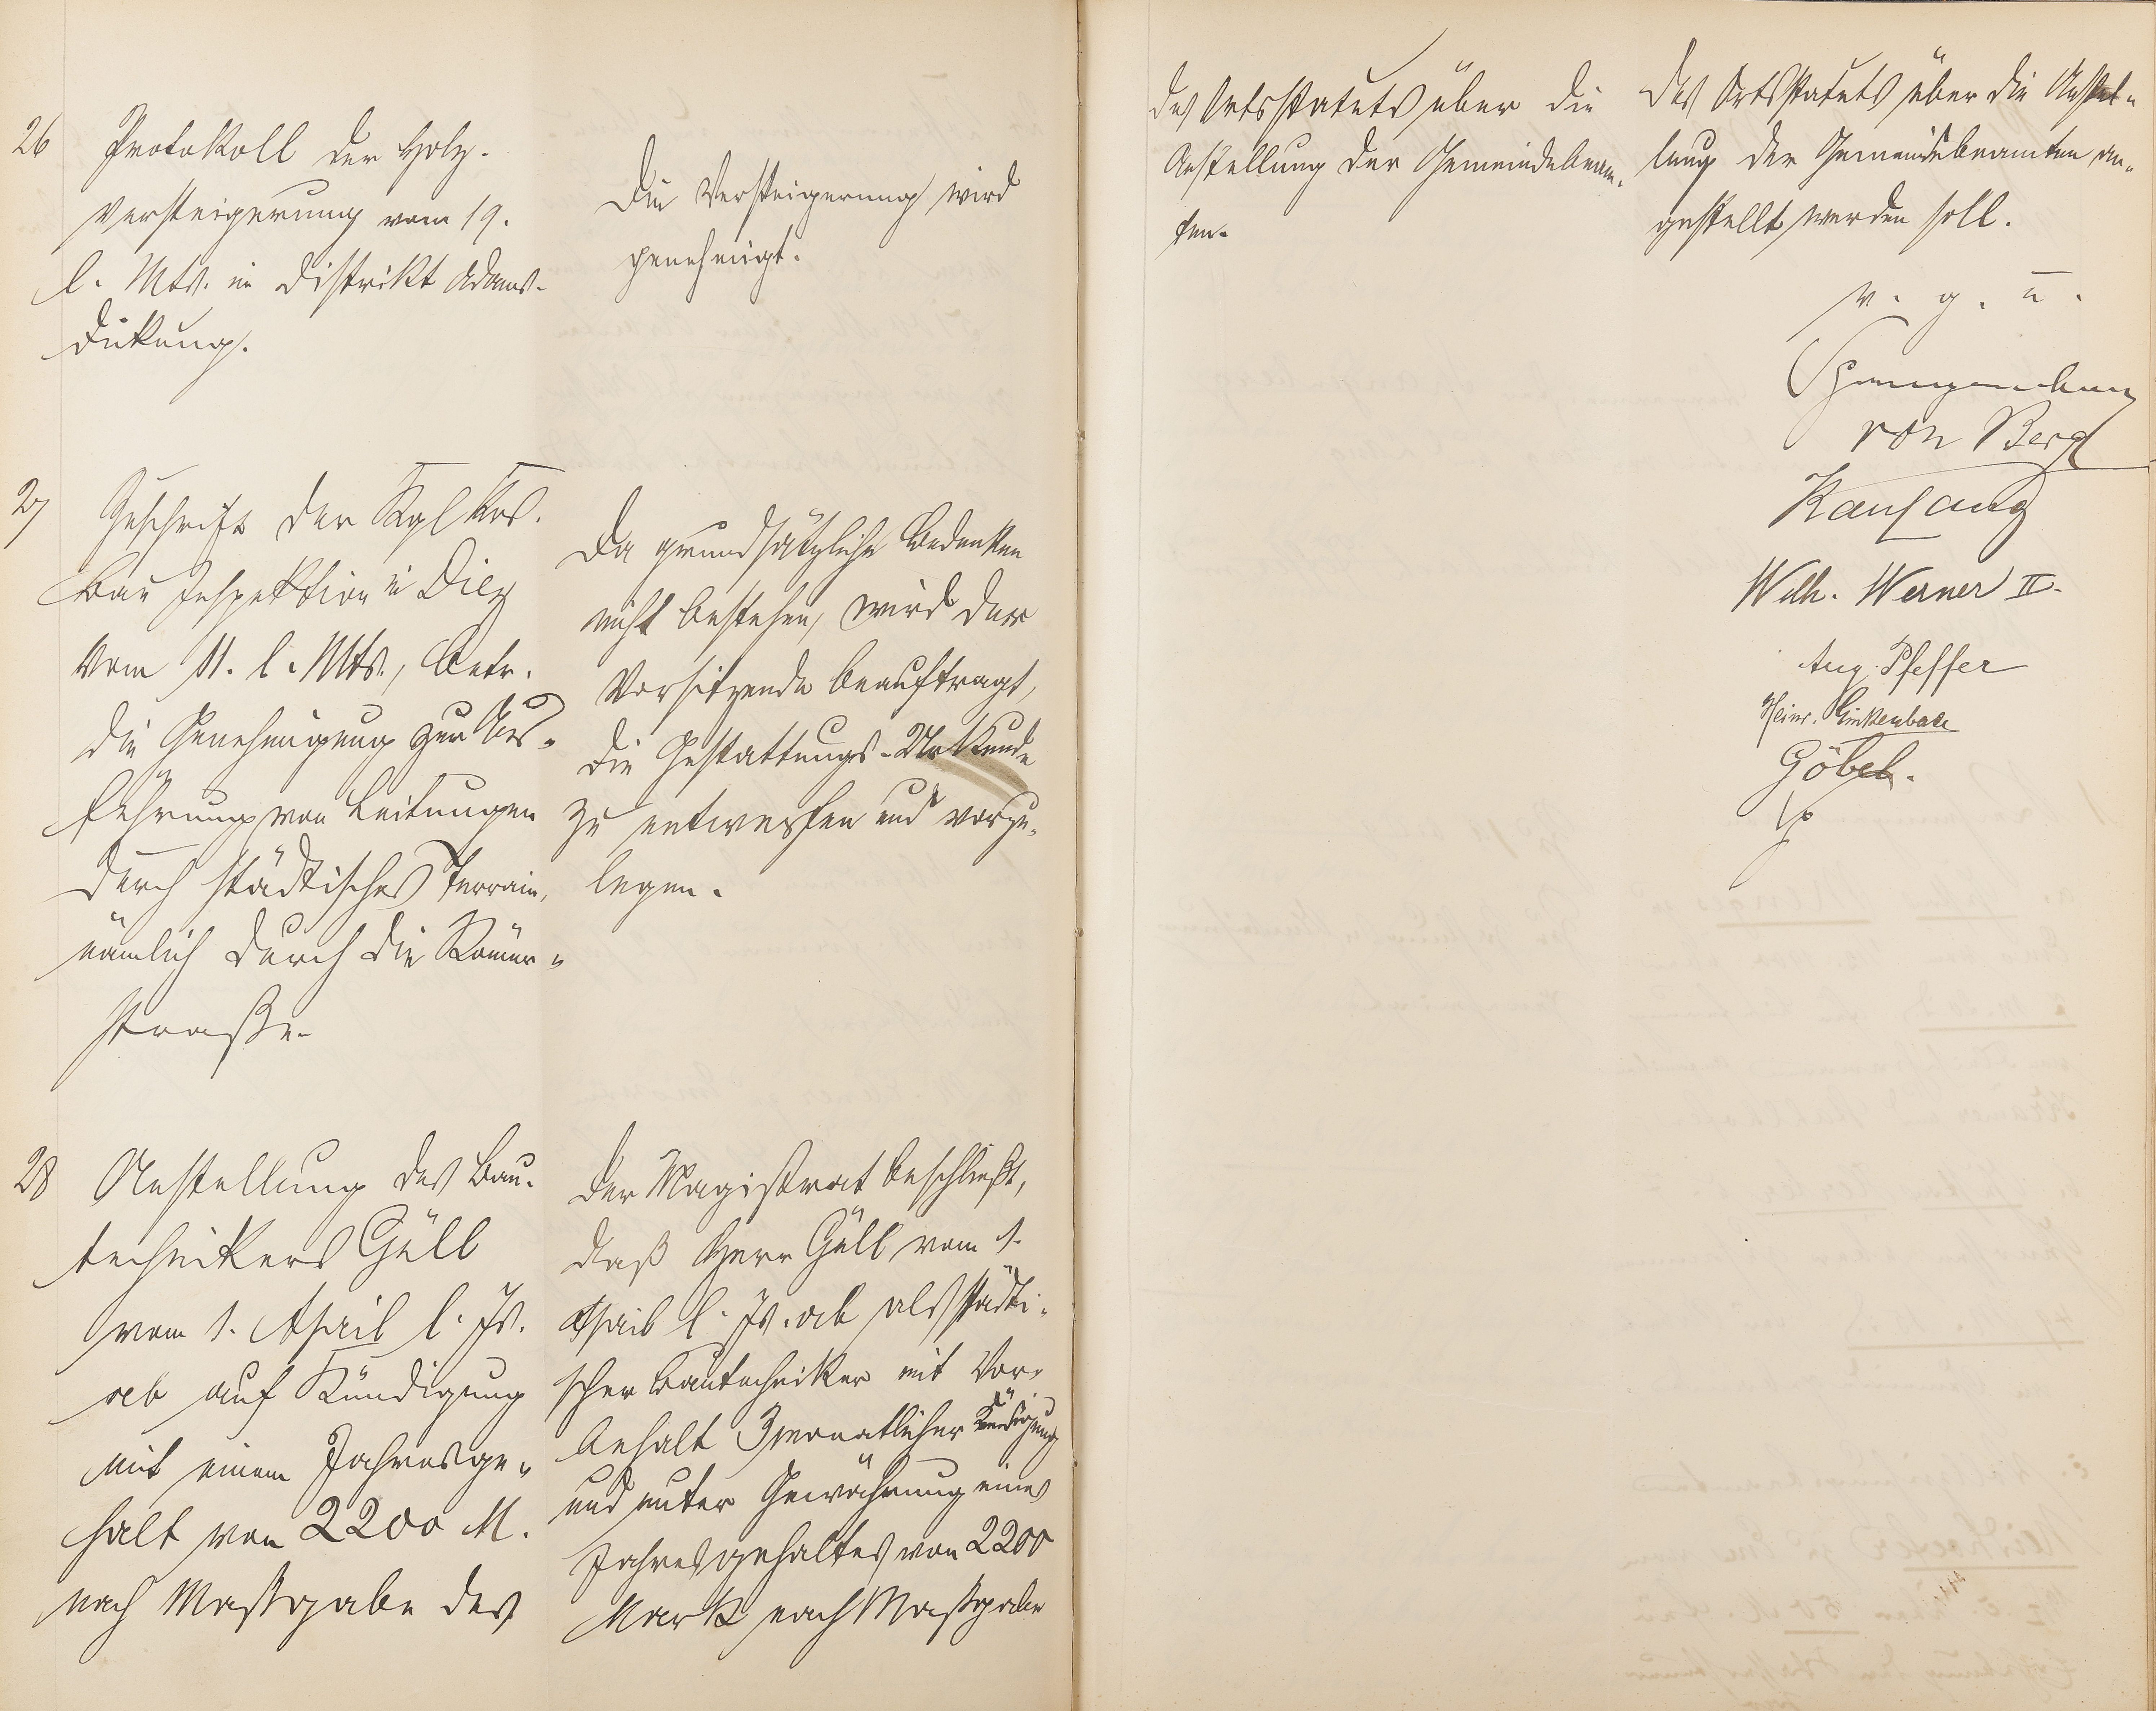 26
Protokoll der Holz-
versteigerung vom 19.
l. Mts. in Distrikt Adams-
dickung.
Die Versteigerung wird
genehmigt.
27
Zuschrift der Kgl
Bau Inspektion in Diez
vom 11. l. Mts., betr.
die Genehmigung zur Aus-
führung von Leitungen
durch städtisches Terrain,
nämlich durch die Römer-
straße.
Da grundsätzliche Bedenken
nicht bestehen, wird der
Vorsitzende beauftragt,
die Gestattungs-Urkunde
zu entwerfen und vorzu-
legen.
28
Anstellung des Bau-
technikers Güll
vom 1. April l. Js.
ab auf Kündigung
mit einem Jahresge-
halt von 2200 M.
nach Maßgabe des
Der Magistrat beschließt,
daß Herr Güll vom 1.
April l. Js. ab als städti-
scher Bautechniker mit Vor-
behalt 3monatlicher Kündigung
und unter Gewährung eines
Jahresgehaltes von 2200
Mark nach Maßgabe
des Ortsstatuts über die
Anstellung der Gemeindebeam-
ten.
des Ortsstatuts über die Anstel-
lung der Gemeindebeamten an-
gestellt werden soll.
v. g. u.
von Berg
Wilh. Werner II.
Aug. Pfeffer
Heinr. Linkenbach
Göbel.